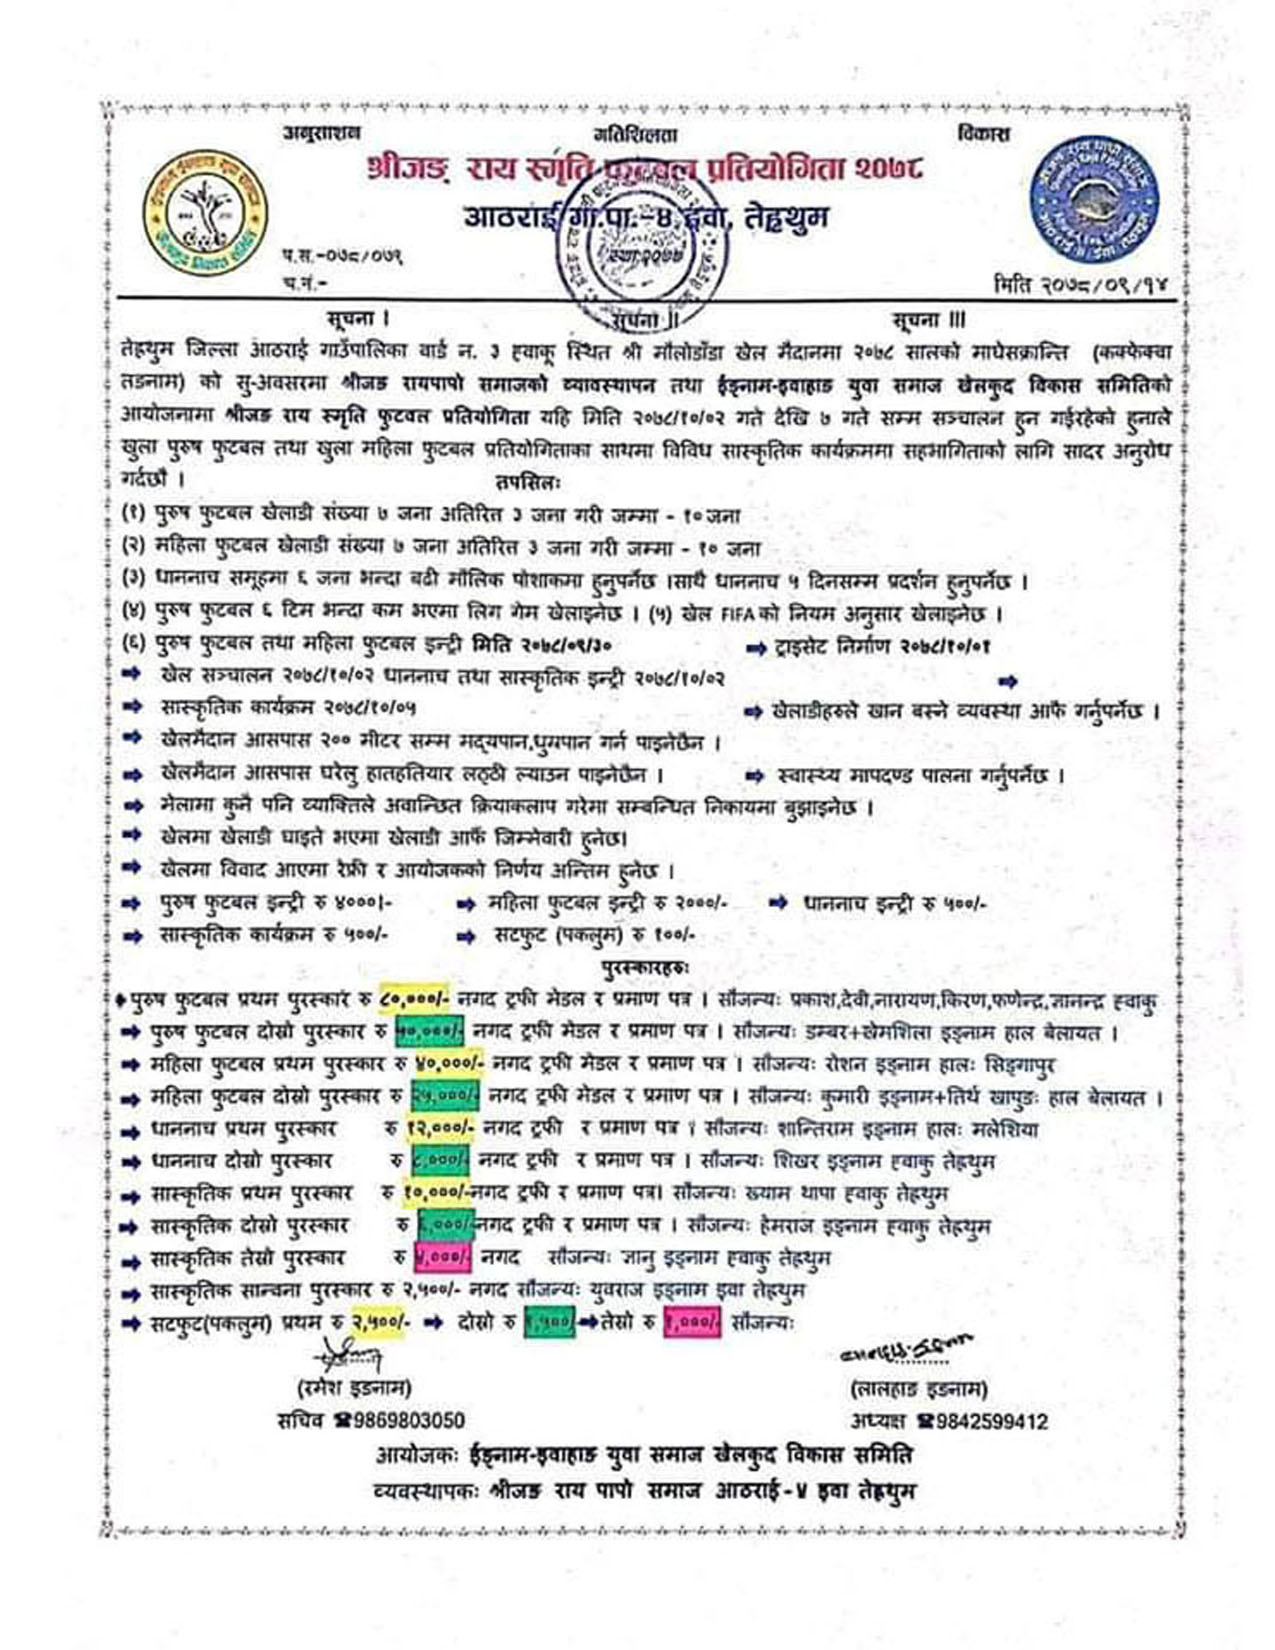 अनुसाशन गतिशिलता विकास
श्रीजङ् राय स्मृति फुटबल प्रतियोगिता २०७८
आठराई गा.पा.-४ इवा, तेह्रथुम
प.स.-०७८/०७९
च.नं.-
स्था.२०७७
मिति २०७८/०९/१४
सूचना । सूचना ॥ सूचना ॥।
तेह्रथुम जिल्ला आठराई गाउँपालिका वार्ड न. ३ ह्वाकू स्थित श्री मौलोडाँडा खेल मैदानमा २०७८ सालको माघेसक्रान्ति (कक्फेक्वा
तङनाम) को सु-अवसरमा श्रीजङ रायपापो समाजको व्यावस्थापन तथा ईङ्नाम-इवाहाङ युवा समाज खेलकुद विकास समितिको
आयोजनामा श्रीजङ राय स्मृति फुटवल प्रतियोगिता यहि मिति २०७८/१०/०२ गते देखि ७ गते सम्म सञ्चालन हुन गईरहेको हुनाले
खुला पुरुष फुटबल तथा खुला महिला फुटबल प्रतियोगिताका साथमा विविध सास्कृतिक कार्यक्रममा सहभागिताको लागि सादर अनुरोध
गर्दछौ । तपसिलः
(१) पुरुष फुटबल खेलाडी संख्या ७ जना अतिरित ३ जना गरी जम्मा - १० जना
(२) महिला फुटबल खेलाडी संख्या ७ जना अतिरित ३ जना गरी जम्मा - १० जना
(३) धाननाच समूहमा ६ जना भन्दा बढी मौलिक पोशाकमा हुनुपर्नेछ ।साथै धाननाच ५ दिनसम्म प्रदर्शन हुनुपर्नेछ ।
(४) पुरुष फुटबल ६ टिम भन्दा कम भएमा लिग गेम खेलाइनेछ । (५) खेल FIFA को नियम अनुसार खेलाइनेछ ।
(६) पुरुष फुटबल तथा महिला फुटबल इन्ट्री मिति २०७८/०९/३० ➡ ट्राइसेट निर्माण २०७८/१०/०१
➡ खेल सञ्चालन २०७८/१०/०२ धाननाच तथा सास्कृतिक इन्ट्री २०७८/१०/०२ ➡
➡ सास्कृतिक कार्यक्रम २०७८/१०/०५ ➡ खेलाडीहरुले खान बस्ने व्यवस्था आफै गर्नुपर्नेछ ।
➡ खेलमैदान आसपास २०० मीटर सम्म मद्यपान,धुम्रपान गर्न पाइनेछैन ।
➡ खेलमैदान आसपास घरेलु हातहतियार लठ्ठी ल्याउन पाइनेछैन । ➡ स्वास्थ्य मापदण्ड पालना गर्नुपर्नेछ ।
➡ मेलामा कुनै पनि व्याक्तिले अवान्छित क्रियाकलाप गरेमा सम्बन्धित निकायमा बुझाइनेछ ।
➡ खेलमा खेलाडी घाइते भएमा खेलाडी आफै जिम्मेवारी हुनेछ।
➡ खेलमा विवाद आएमा रेफ्री र आयोजकको निर्णय अन्तिम हुनेछ ।
➡ पुरुष फुटबल इन्ट्री रु ४०००।- ➡ महिला फुटबल इन्ट्री रु २०००/- ➡ धाननाच इन्ट्री रु ५००/-
➡ सास्कृतिक कार्यक्रम रु ५००/- ➡ सटफुट (पकलुम) रु १००/-
पुरस्कारहरुः
➡ पुरुष फुटबल प्रथम पुरस्कार रु ८०,०००/- नगद ट्रफी मेडल र प्रमाण पत्र । सौजन्यः प्रकाश,देवी,नारायण,किरण,फणेन्द्र,ज्ञानन्द्र ह्वाकु
➡ पुरुष फुटबल दोस्रो पुरस्कार रु ५०,०००/- नगद ट्रफी मेडल र प्रमाण पत्र । सौजन्यः डम्बर+खेमशिला इङ्नाम हाल बेलायत ।
➡ महिला फुटबल प्रथम पुरस्कार रु ४०,०००/- नगद ट्रफी मेडल र प्रमाण पत्र । सौजन्यः रोशन इङ्नाम हालः सिङ्गापुर
➡ महिला फुटबल दोस्रो पुरस्कार रु २५,०००/- नगद ट्रफी मेडल र प्रमाण पत्र । सौजन्यः कुमारी इङ्नाम+तिर्थ खापुङः हाल बेलायत ।
➡ धाननाच प्रथम पुरस्कार रु १२,०००/- नगद ट्रफी र प्रमाण पत्र । सौजन्यः शान्तिराम इङ्नाम हालः मलेशिया
➡ धाननाच दोस्रो पुरस्कार रु ८,०००/- नगद ट्रफी र प्रमाण पत्र । सौजन्यः शिखर इङ्नाम ह्वाकु तेह्रथुम
➡ सास्कृतिक प्रथम पुरस्कार रु १०,०००/-नगद ट्रफी र प्रमाण पत्र। सौजन्यः ख्याम थापा ह्वाकु तेह्रथुम
➡ सास्कृतिक दोस्रो पुरस्कार रु ६,०००/-नगद ट्रफी र प्रमाण पत्र । सौजन्यः हेमराज इङ्नाम ह्वाकु तेह्रथुम
➡ सास्कृतिक तेस्रो पुरस्कार रु ४,०००/- नगद सौजन्यः ज्ञानु इङ्नाम ह्वाकु तेह्रथुम
➡ सास्कृतिक सान्त्वना पुरस्कार रु २,५००/- नगद सौजन्यः युवराज इङ्नाम इवा तेह्रथुम
➡ सटफुट(पकलुम) प्रथम रु २,५००/- ➡ दोस्रो रु १,५०० ➡तेस्रो रु १,०००/- सौजन्यः
(रमेश इङनाम) (लालहाङ इङनाम)
सचिव ☎9869803050 अध्यक्ष ☎9842599412
आयोजकः ईङ्नाम-इवाहाङ युवा समाज खेलकुद विकास समिति
व्यवस्थापकः श्रीजङ राय पापो समाज आठराई-४ इवा तेह्रथुम